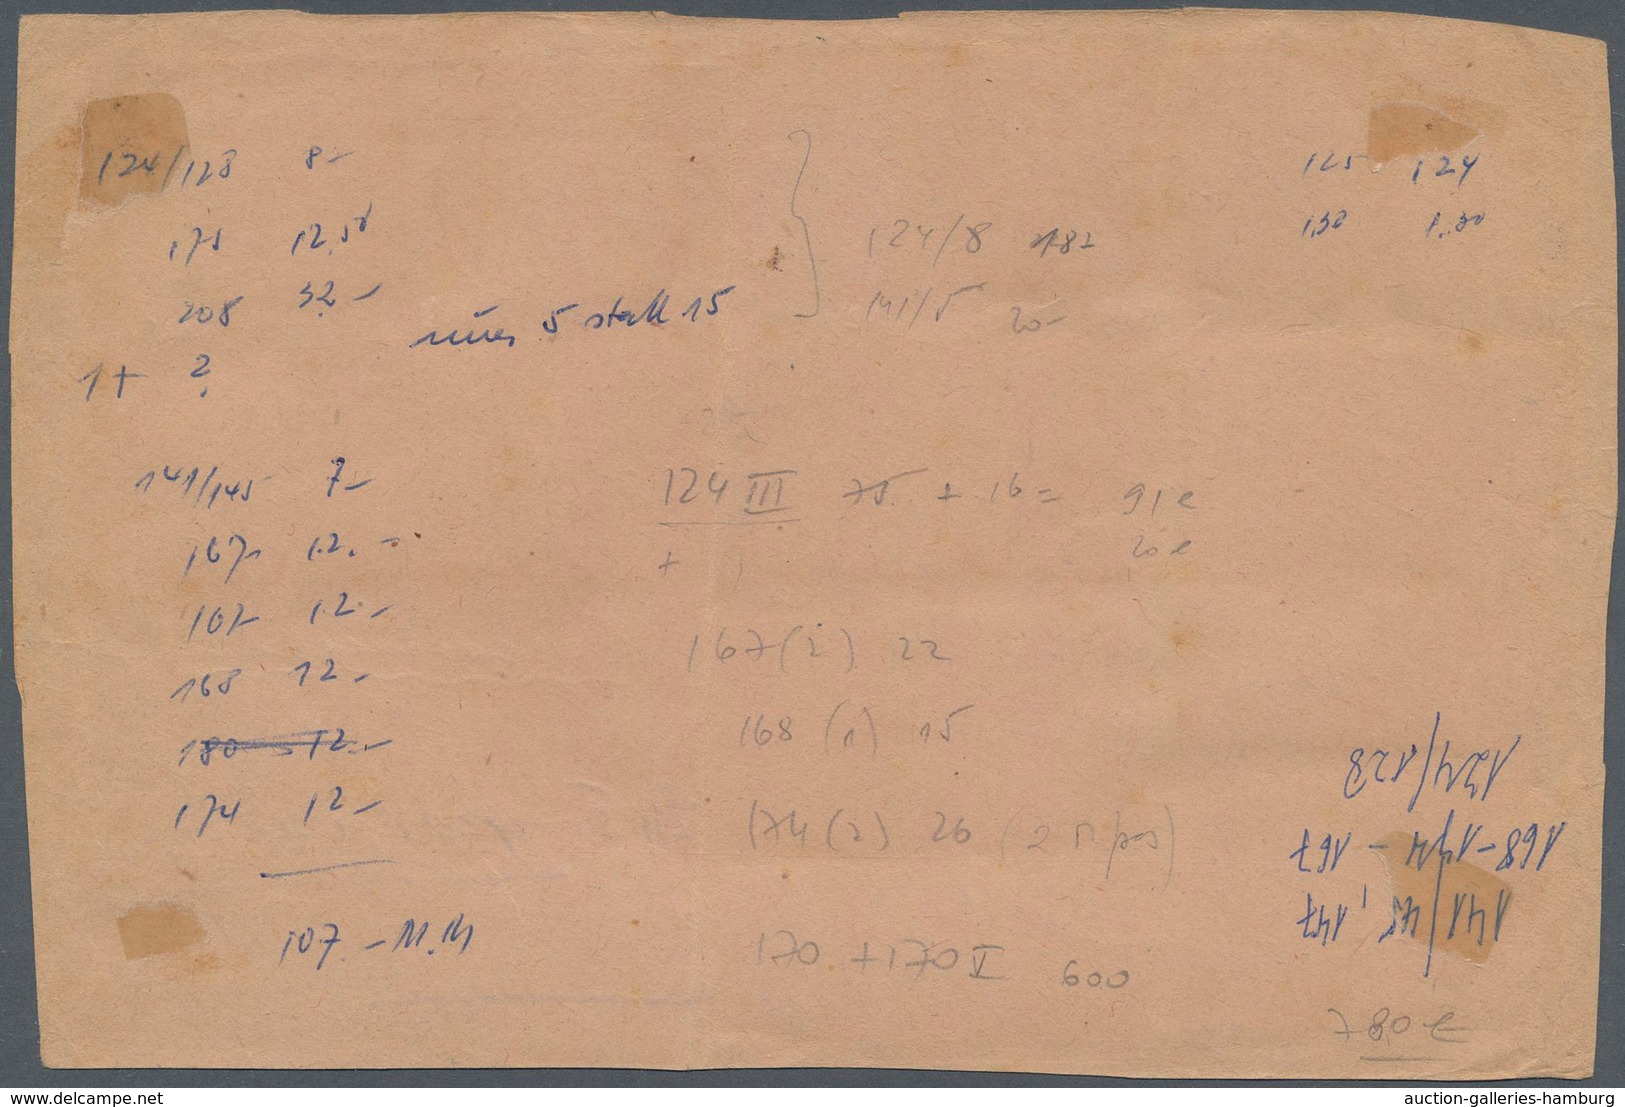 124/128 8-
175 12,50
208 32-
5 statt 15
1+ ?
124/8 182
141/5 20-
125 124
1,30 1,30
141/145 7-
167 12.-
167 12.-
168 12-
180 12.-
174 12-
107.- M.M
124 III 75 + 16 = 91 €
+ 20 €
167 (2) 22
168 (1) 15
174 (2) 26 (2
170 + 170 V 600
141/45, 147
168-174-167
124/128
780 €
delcampe.net
auction-galleries-hamburg